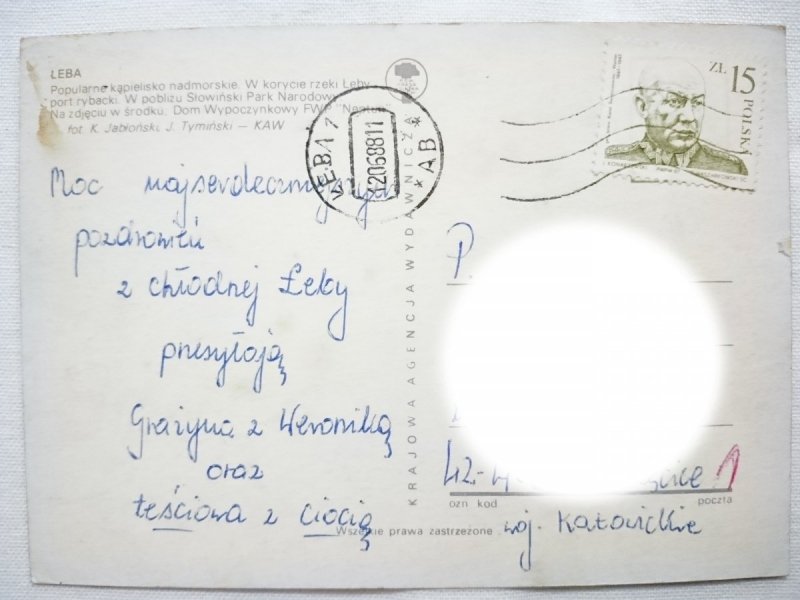 ŁEBA
Popularne kąpielisko nadmorskie. W korycie rzeki Łeby
port rybacki. W pobliżu Słowiński Park Narodowy
Na zdjęciu w środku: Dom Wypoczynkowy FWP
fot K. Jabłoński, J. Tymiński — KAW
ŁEBA 1
12068811
* AB *
ZŁ 15
POLSKA
Moc najserdeczniejszych
pozdrowień
z chłodnej Łeby
przesyłają
Grażyna z Weroniką
oraz
teściowa z ciocią
KRAJOWA AGENCJA WYDAWNICZA
P.
42-
1
ozn kod
poczta
Wszelkie prawa zastrzeżone
woj. Katowickie